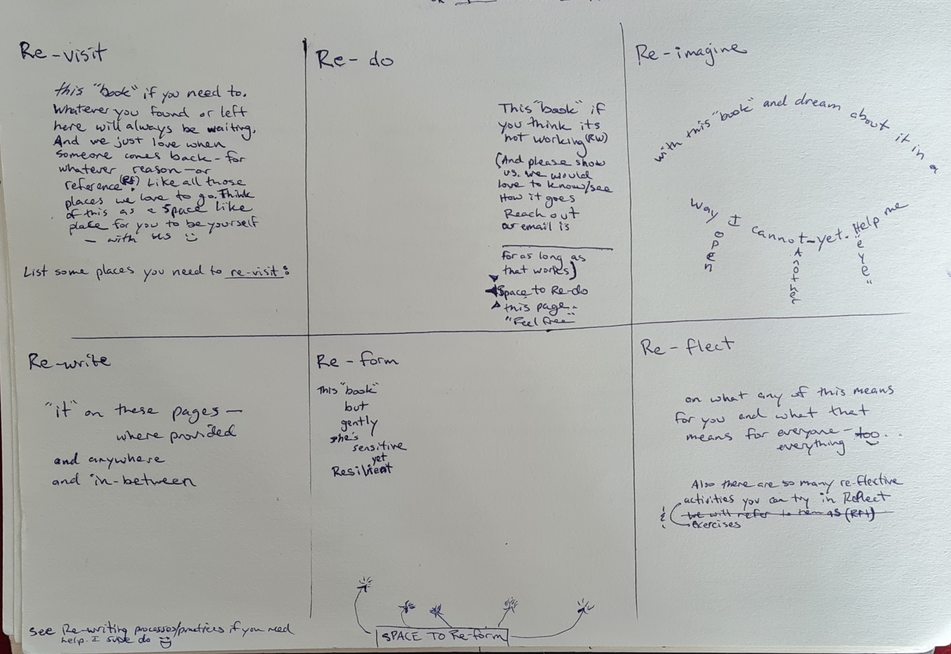 Re-visit
this "book" if you need to.
Whatever you found or left
here will always be waiting.
And we just love when
someone comes back - for
whatever reason - or
reference(Rf)! Like all those
places we love to go. Think
of this as a space like
place for you to be yourself
- with us
List some places you need to re-visit:
Re-do
This "book" if
you think its
not working (RW)
(And please show
us. we would
love to know/see
How it goes
Reach out
our email is
for as long as
that works)
Space to Re-do
this page.
"Feel free"
Re-imagine
with this "book" and dream about it in a
way I cannot-yet. Help me
open
Another
"eye"
Re-write
"it" on these pages -
where provided
and anywhere
and in-between
see Re-writing processes/practices if you need
help. I sure do
Re-form
This "book"
but
gently
she's
sensitive
yet
Resilient
SPACE TO Re-form
Re-flect
on what any of this means
for you and what that
means for everyone -
everything too..
Also there are so many re-flective
activities you can try in Reflect
& (we will refer to them as (Rfl)
exercises